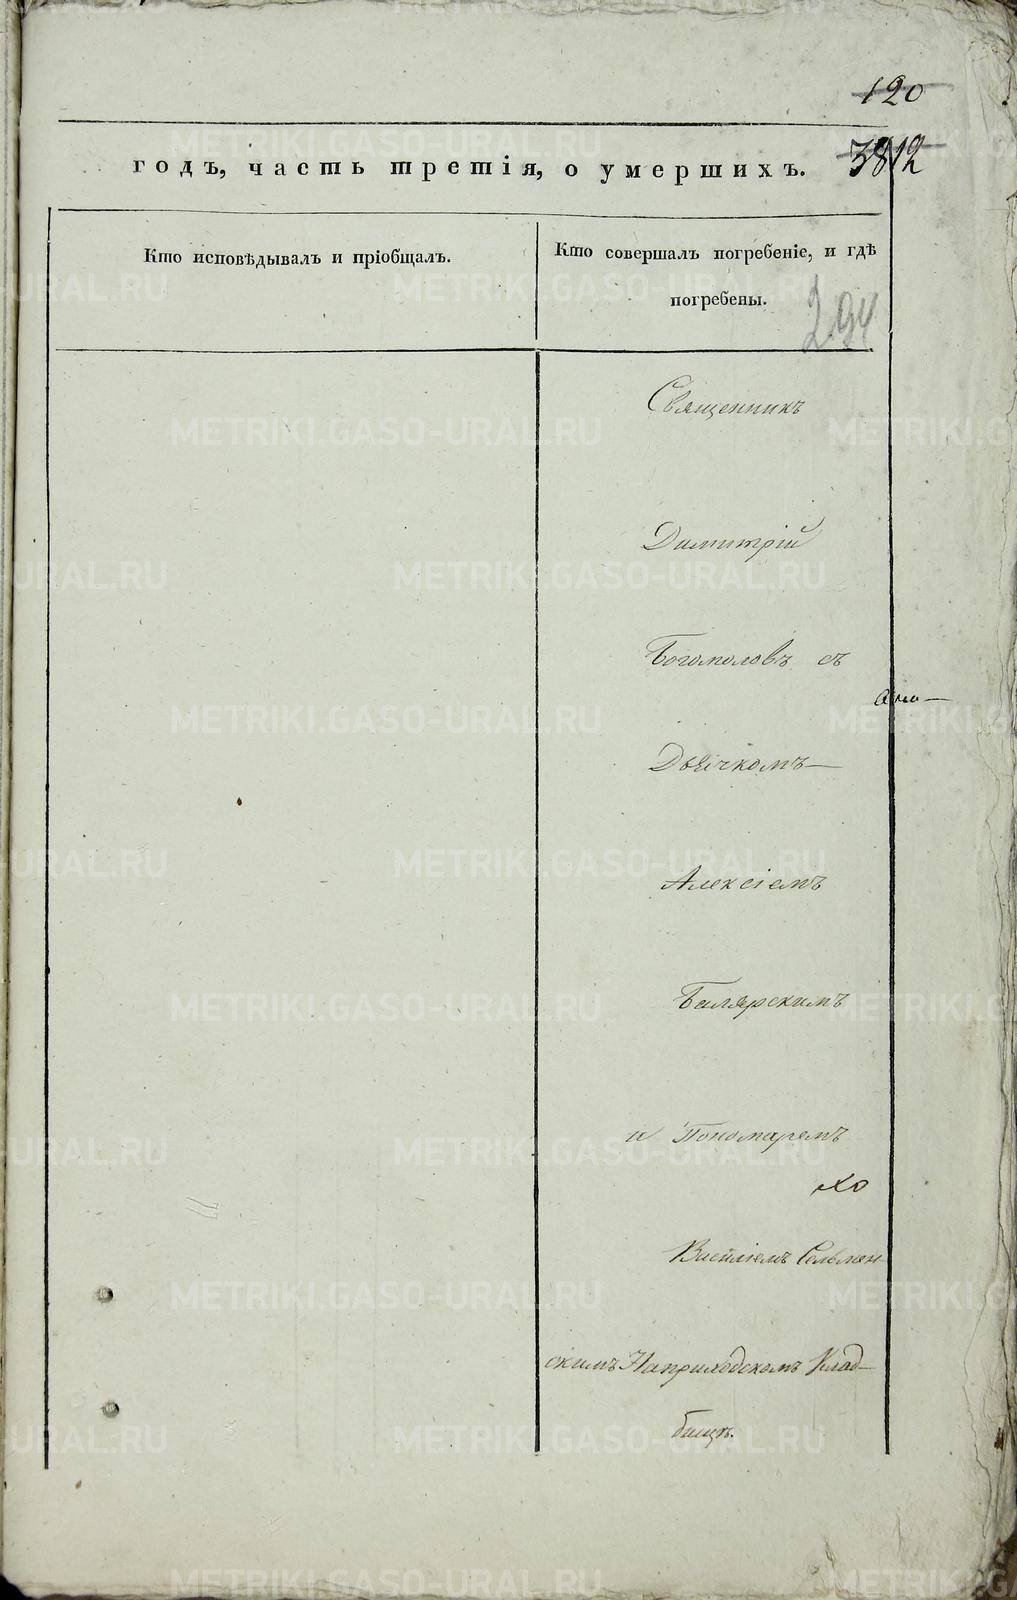 120
3812
годъ, часть третія, о умершихъ.
Кто исповѣдывалъ и пріобщалъ.
Кто совершалъ погребеніе, и гдѣ
погребены.
294
Священникъ
Димитрій
Богомоловъ съ
Дьячкомъ
Алексіемъ
Билярскимъ
и Пономаремъ
Хо
Василіемъ Сельмен
скимъ На приходскомъ клад
бищѣ.
METRIKI.GASO-URAL.RU